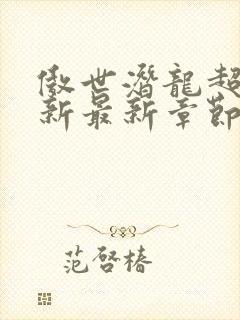 傲世潛龍超
新最新章節
范啓椿